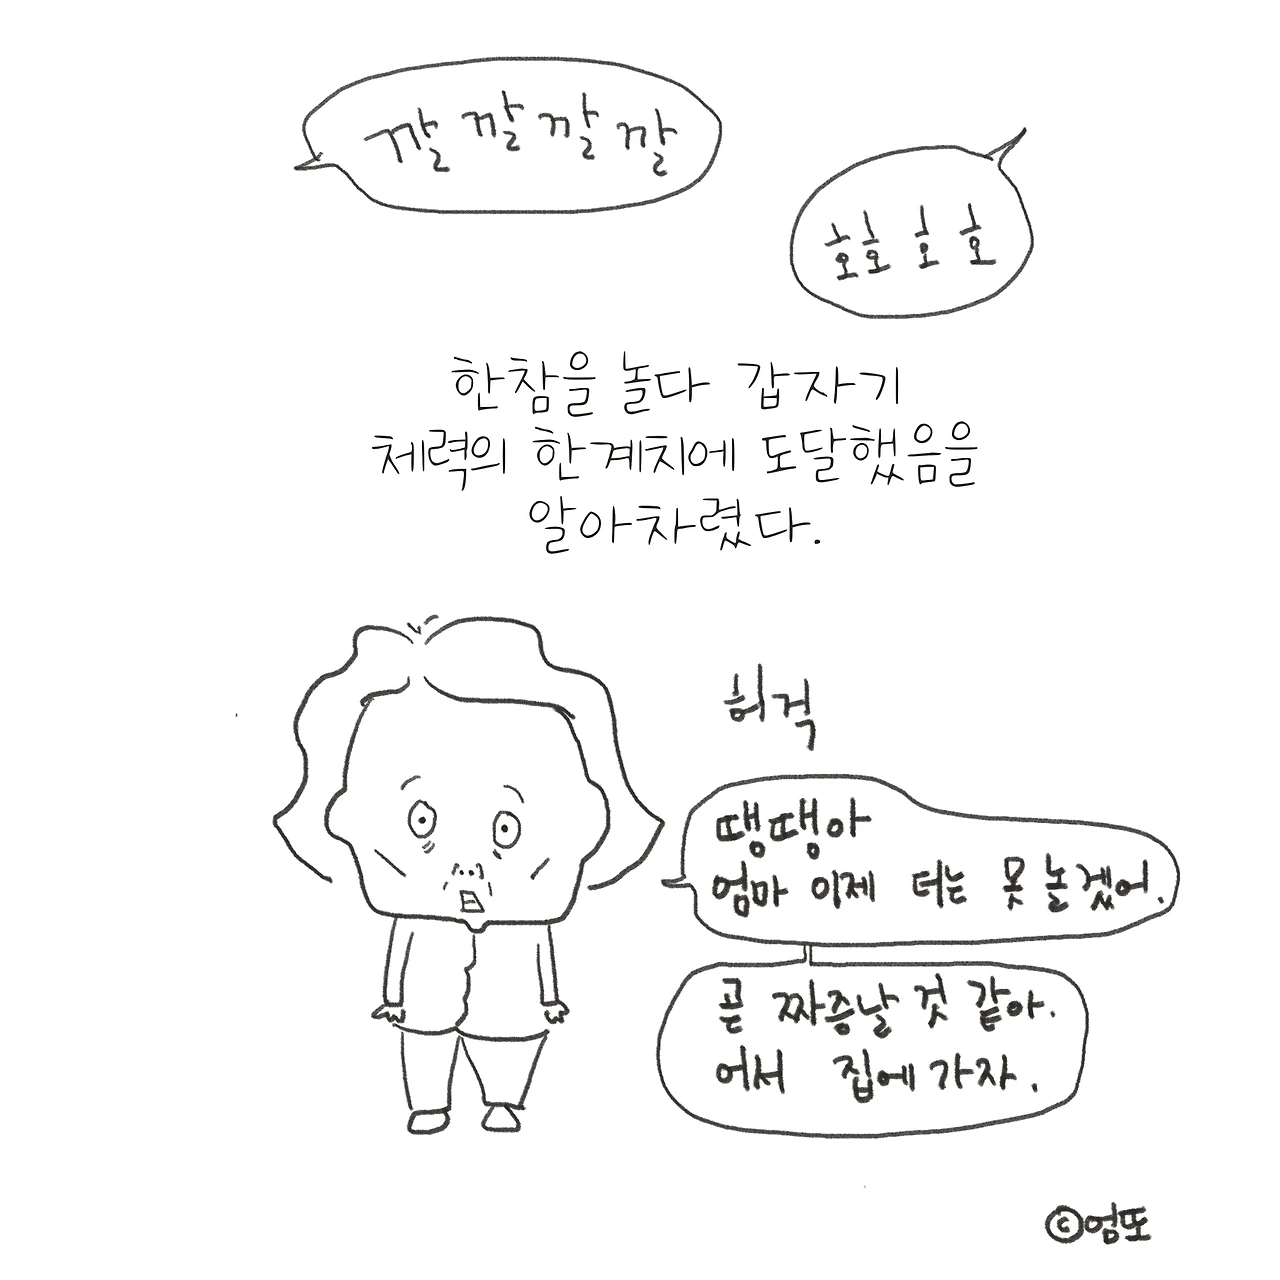 깔깔깔깔
호호호호
한참을 놀다 갑자기
체력의 한계치에 도달했음을
알아차렸다.
허걱
땡땡아
엄마 이제 더는 못 놀겠어.
곧 짜증날 것 같아.
어서 집에 가자.
©엄또